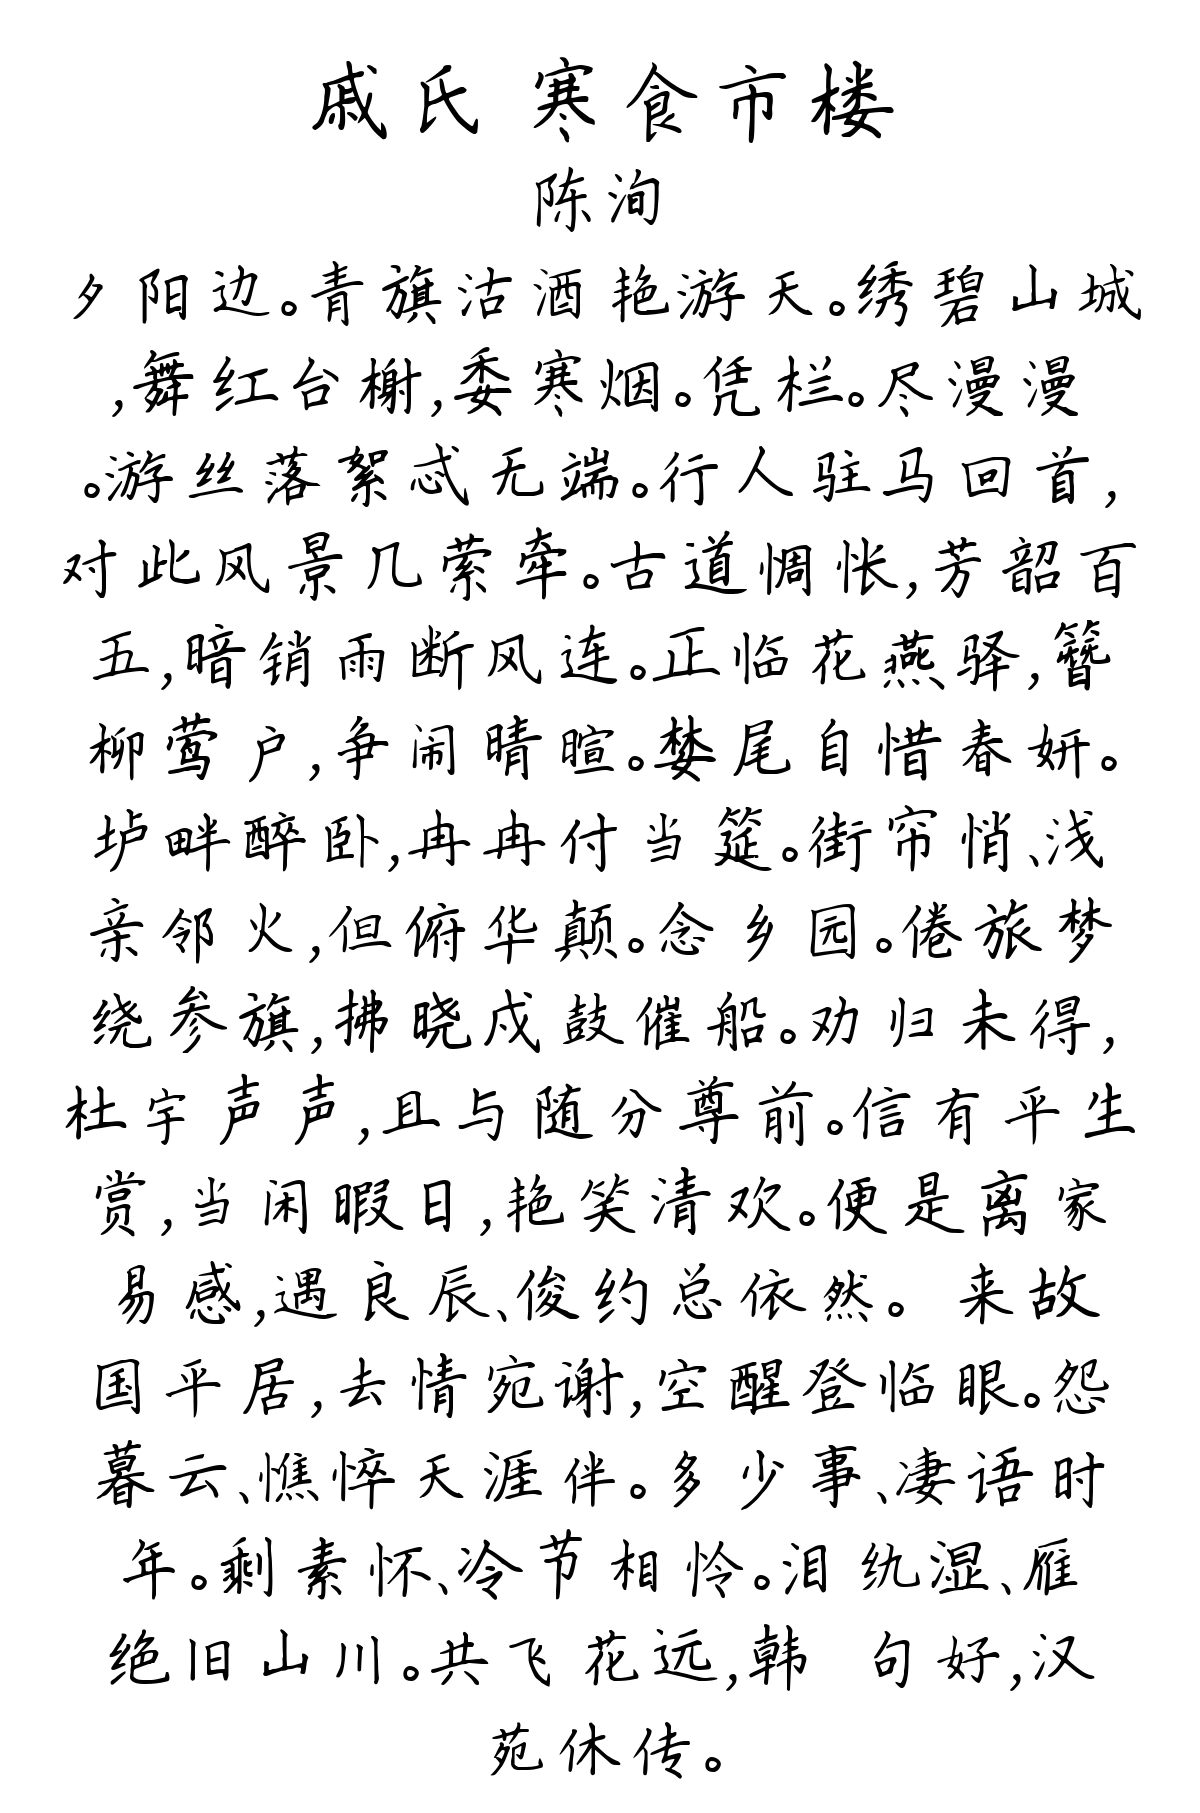 戚氏 寒食市楼
陈洵
夕阳边。青旗沽酒艳游天。绣碧山城
,舞红台榭,委寒烟。凭栏。尽漫漫
。游丝落絮忒无端。行人驻马回首,
对此风景几萦牵。古道惆怅,芳韶百
五,暗销雨断风连。正临花燕驿,簪
柳莺户,争闹晴暄。婪尾自惜春妍。
垆畔醉卧,冉冉付当筵。街帘悄、浅
亲邻火,但俯华颠。念乡园。倦旅梦
绕参旗,拂晓戍鼓催船。劝归未得,
杜宇声声,且与随分尊前。信有平生
赏,当闲暇日,艳笑清欢。便是离家
易感,遇良辰、俊约总依然。 来故
国平居,去情宛谢,空醒登临眼。怨
暮云、憔悴天涯伴。多少事、凄语时
年。剩素怀、冷节相怜。泪纨湿、雁
绝旧山川。共飞花远,韩 句好,汉
苑休传。